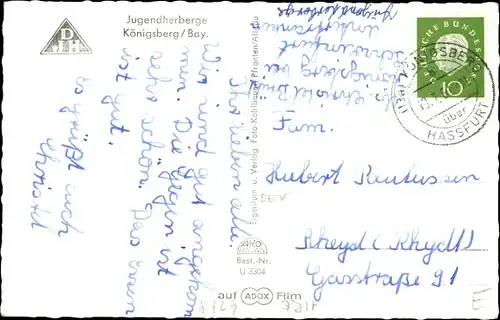 DJH
Jugendherberge
Königsberg / Bay.
Ihr lieben alle.
Wir sind gut angekom
men. Die Gegen ist
sehr schön. Das Essen
ist gut.
Es grüßt euch
Christel
Eigentum u. Verlag Foto-Kohlbauer Pfronten/Allgäu
AKO
Best.-Nr.
U 3304
auf ADOX Film
Jugendherberge
Königsberg
Schweinfurt
DEUTSCHE BUNDESPOST
10
KÖNIGSBERG
(BAY)
über
HASSFURT
Fam.
Hubert
Rheydt (Rhydt)
Gasstraße 91